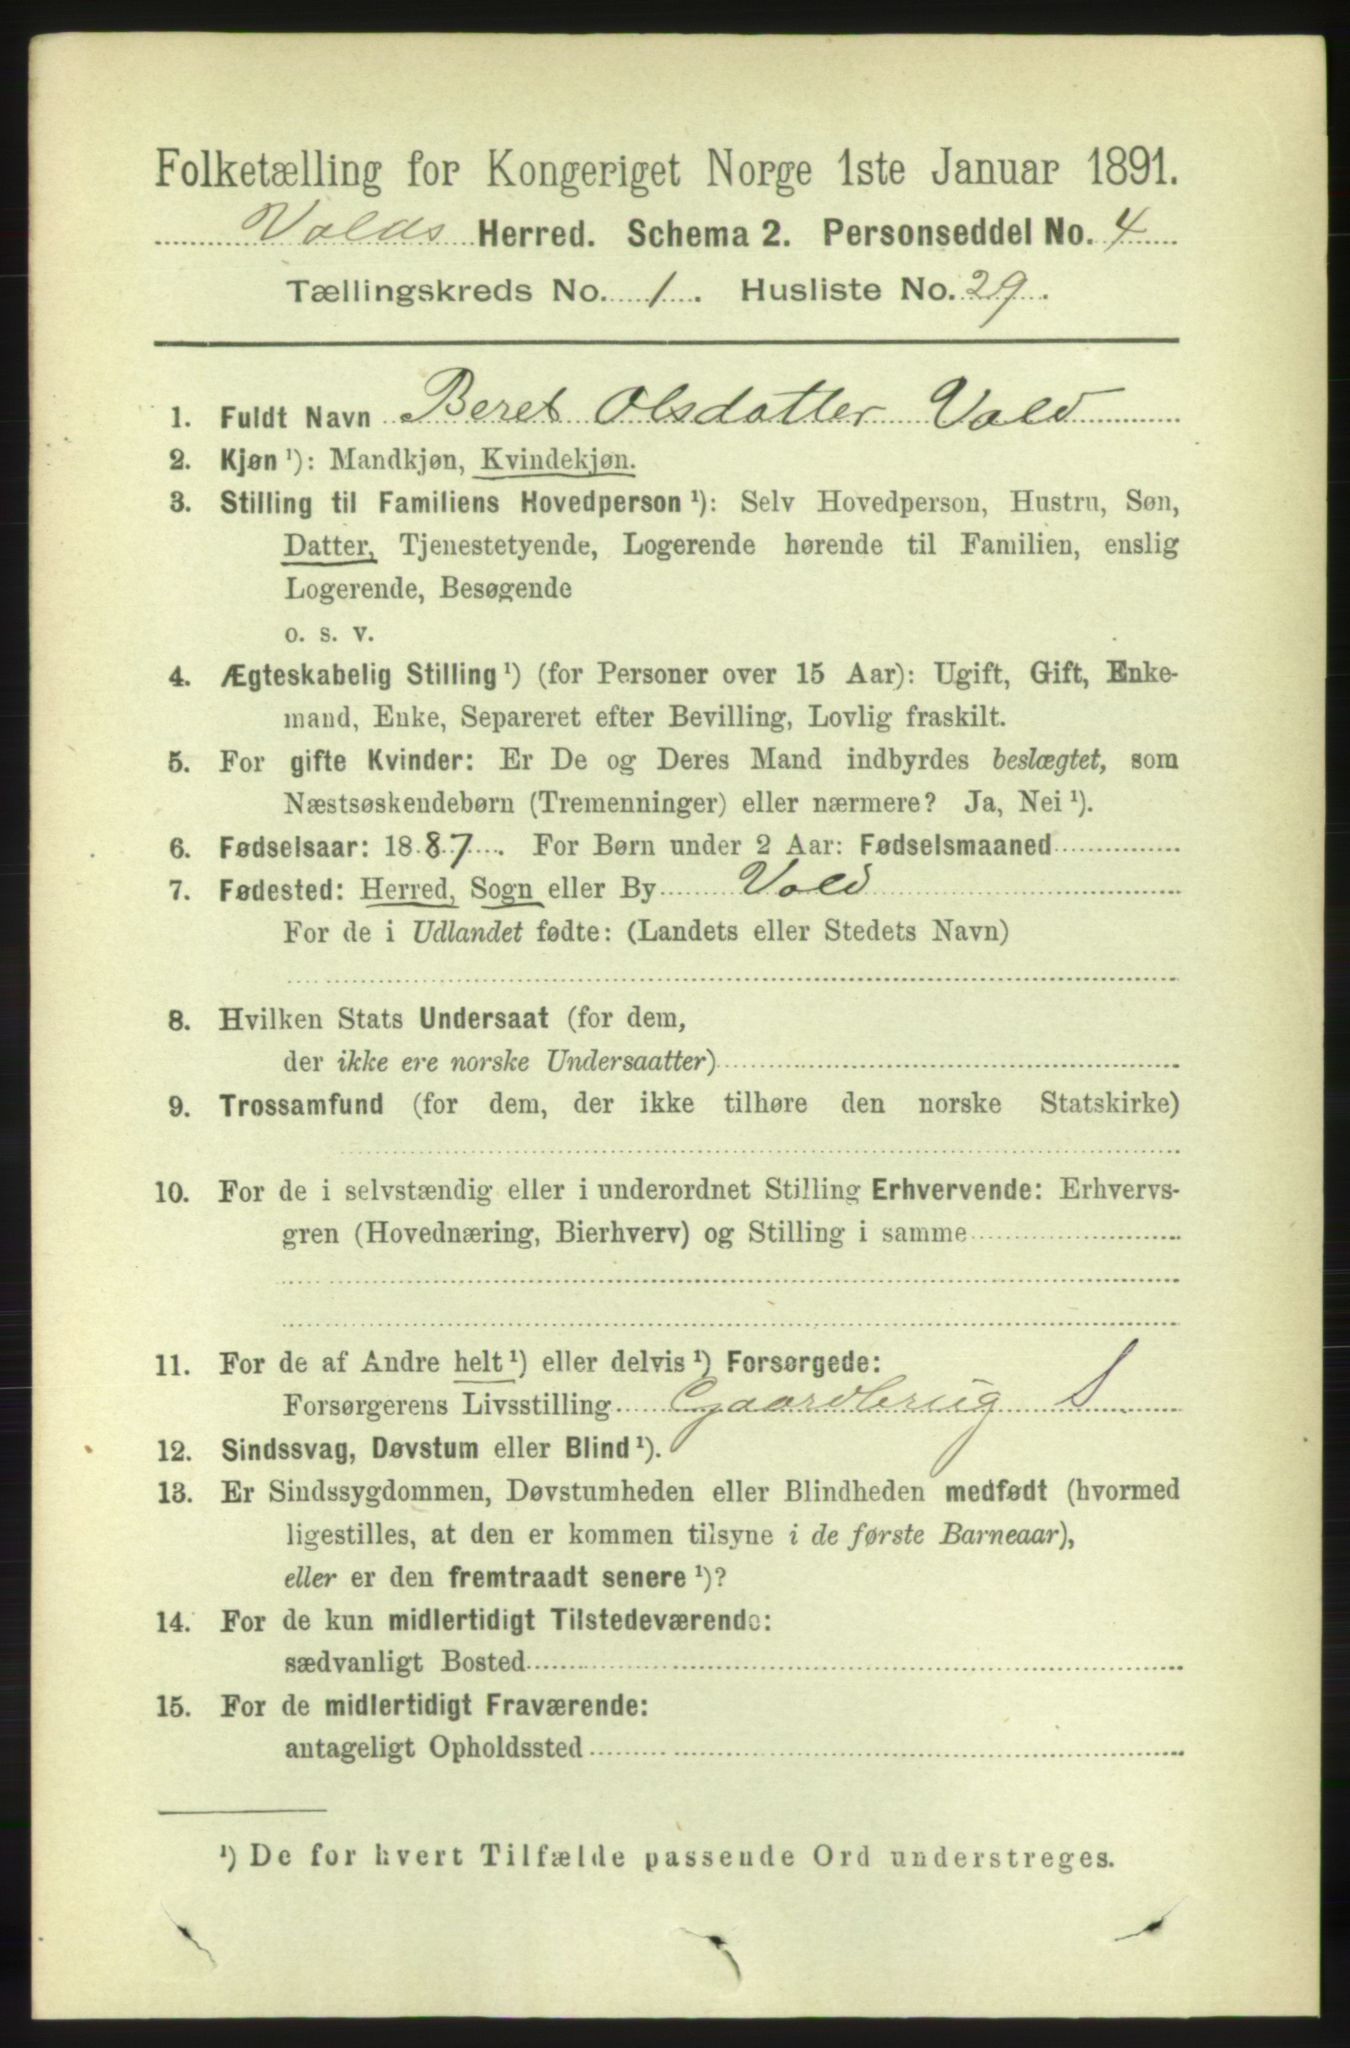 Folketælling for Kongeriget Norge 1ste Januar 1891.
Volds Herred. Schema 2. Personseddel No. 4
Tællingskreds No. 1. Husliste No. 29.
1. Fuldt Navn Beret Olsdatter Vold
2. Kjøn ¹): Mandkjøn, Kvindekjøn.
3. Stilling til Familiens Hovedperson ¹): Selv Hovedperson, Hustru, Søn,
Datter, Tjenestetyende, Logerende hørende til Familien, enslig
Logerende, Besøgende
o. s. v.
4. Ægteskabelig Stilling ¹) (for Personer over 15 Aar): Ugift, Gift, Enke-
mand, Enke, Separeret efter Bevilling, Lovlig fraskilt.
5. For gifte Kvinder: Er De og Deres Mand indbyrdes beslægtet, som
Næstsøskendebørn (Tremenninger) eller nærmere? Ja, Nei ¹).
6. Fødselsaar: 1887. For Børn under 2 Aar: Fødselsmaaned
7. Fødested: Herred, Sogn eller By Vold
For de i Udlandet fødte: (Landets eller Stedets Navn)
8. Hvilken Stats Undersaat (for dem,
der ikke ere norske Undersaatter)
9. Trossamfund (for dem, der ikke tilhøre den norske Statskirke)
10. For de i selvstændig eller i underordnet Stilling Erhvervende: Erhvervs-
gren (Hovednæring, Bierhverv) og Stilling i samme
11. For de af Andre helt ¹) eller delvis ¹) Forsørgede:
Forsørgerens Livsstilling Gaardbrug S
12. Sindssvag, Døvstum eller Blind ¹).
13. Er Sindssygdommen, Døvstumheden eller Blindheden medfødt (hvormed
ligestilles, at den er kommen tilsyne i de første Barneaar),
eller er den fremtraadt senere ¹)?
14. For de kun midlertidigt Tilstedeværende:
sædvanligt Bosted
15. For de midlertidigt Fraværende:
antageligt Opholdssted
¹) De for hvert Tilfælde passende Ord understreges.